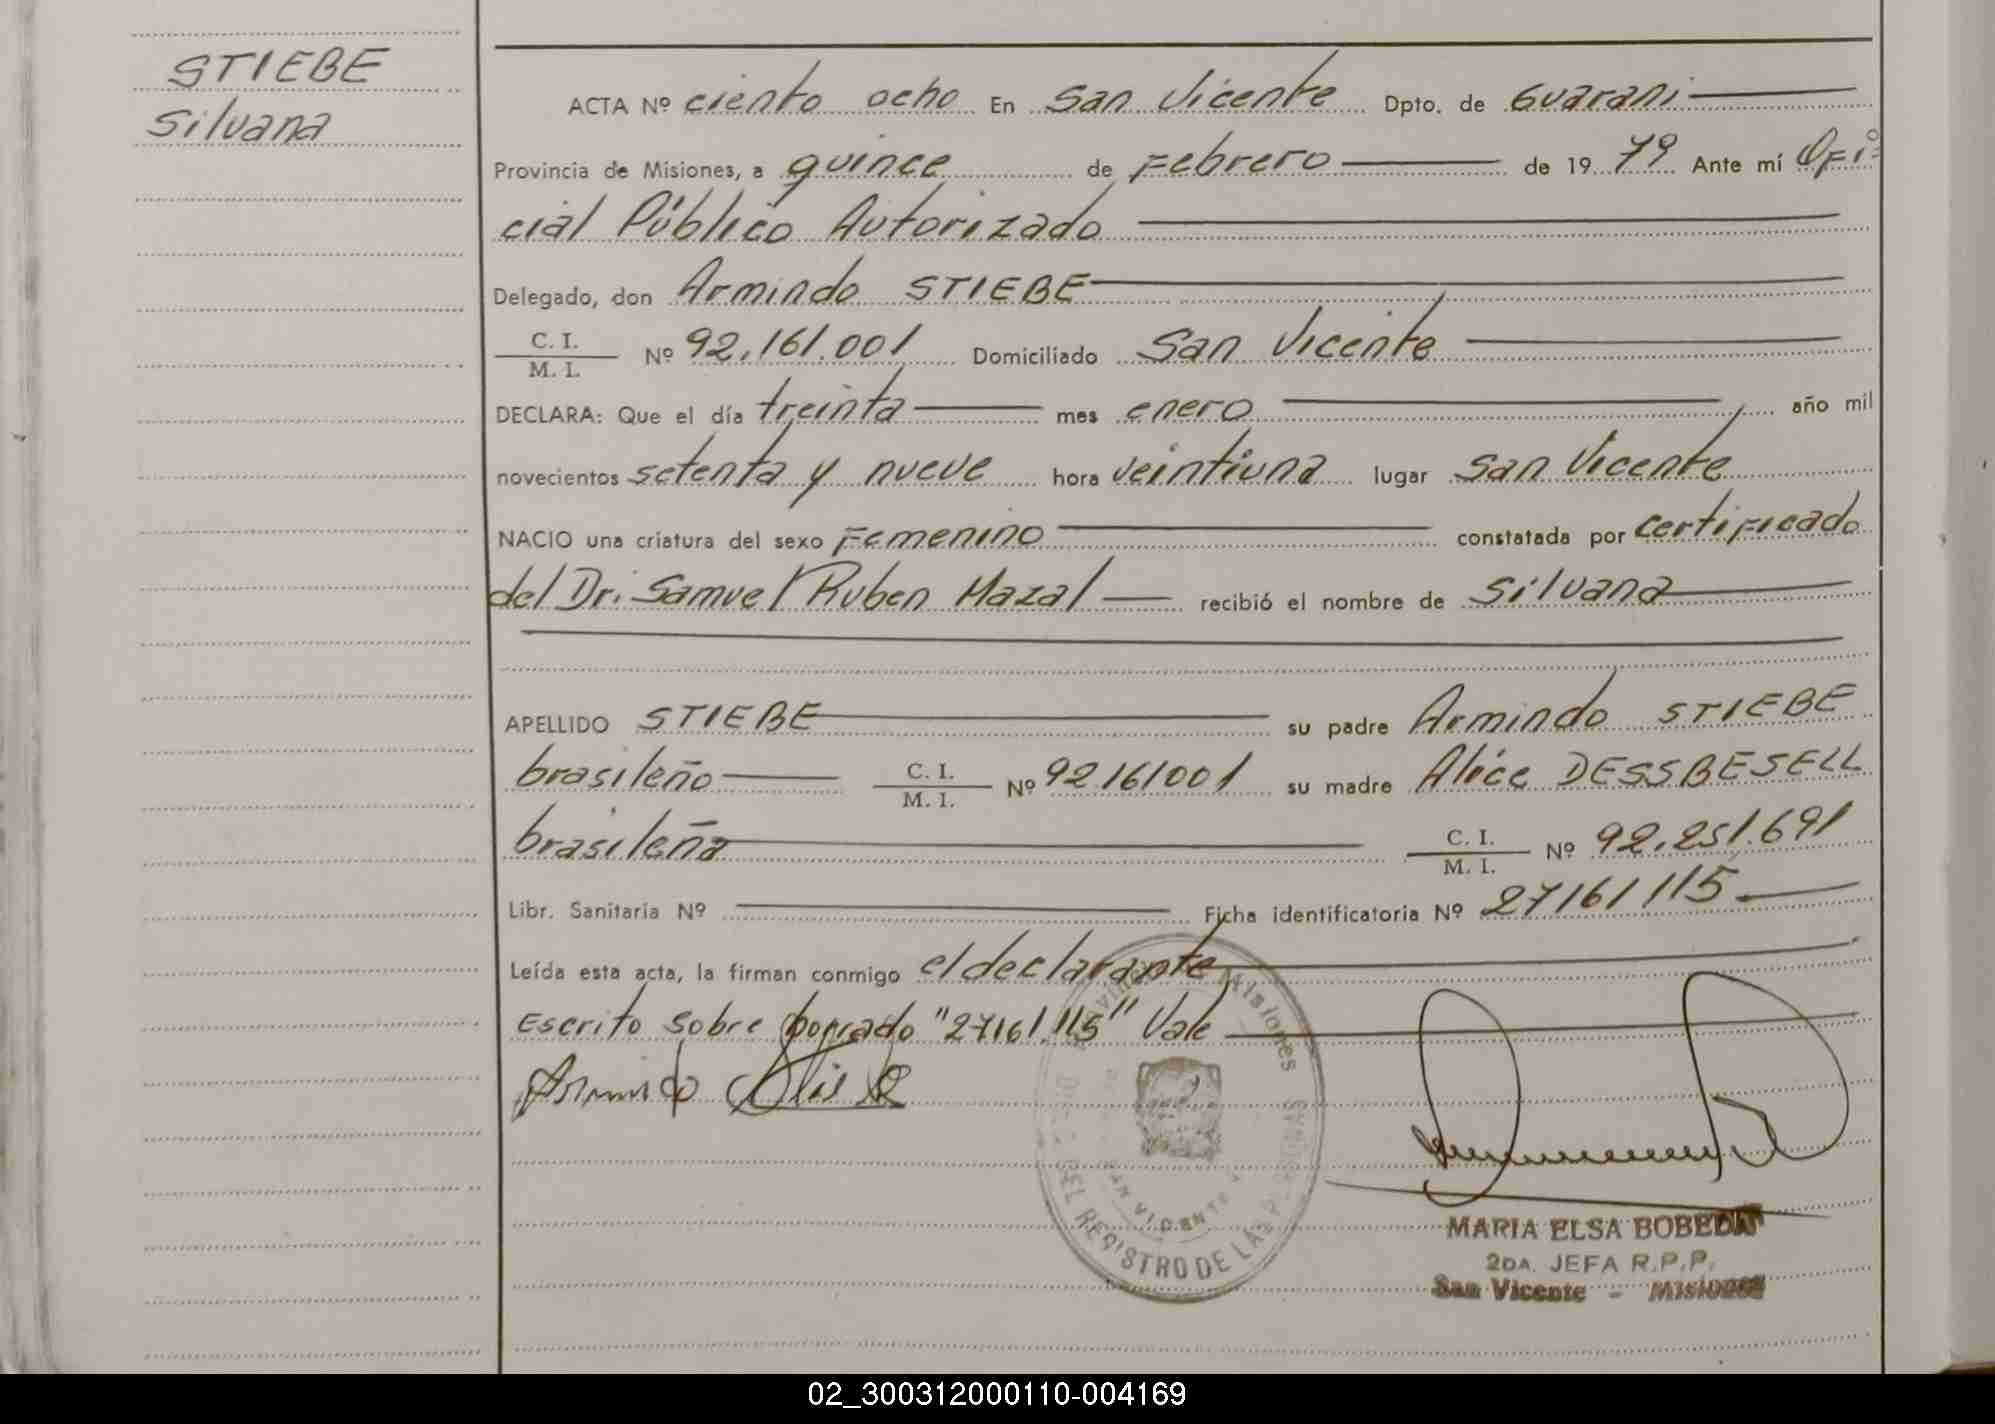 STIEBE
Silvana
ACTA Nº ciento ocho En San Vicente Dpto. de Guarani
Provincia de Misiones, a quince de Febrero de 19 79 Ante mí Ofi=
cial Público Autorizado
Delegado, don Armindo STIEBE
C. I.
M. I.
Nº 92.161.001 Domiciliado San Vicente
DECLARA: Que el día treinta mes enero año mil
novecientos setenta y nueve hora veintiuna lugar San Vicente
NACIO una criatura del sexo Femenino constatada por certificado
del Dr. Samuel Ruben Mazal recibió el nombre de Silvana
APELLIDO STIEBE su padre Armindo STIEBE
brasileño C. I. M. I. Nº 92161001 su madre Alice DESSBESELL
brasileña C. I. M. I. Nº 92.251.691
Libr. Sanitaria Nº Ficha identificatoria Nº 27161115
Leída esta acta, la firman conmigo el declarante
Escrito sobre borrado "27161.115" Vale
Armindo
Misiones
SAN VICENTE
DEL REGISTRO DE LAS PERSONAS
MARIA ELSA BOBEDA
2DA. JEFA R.P.P.
San Vicente - Misiones
02_300312000110-004169